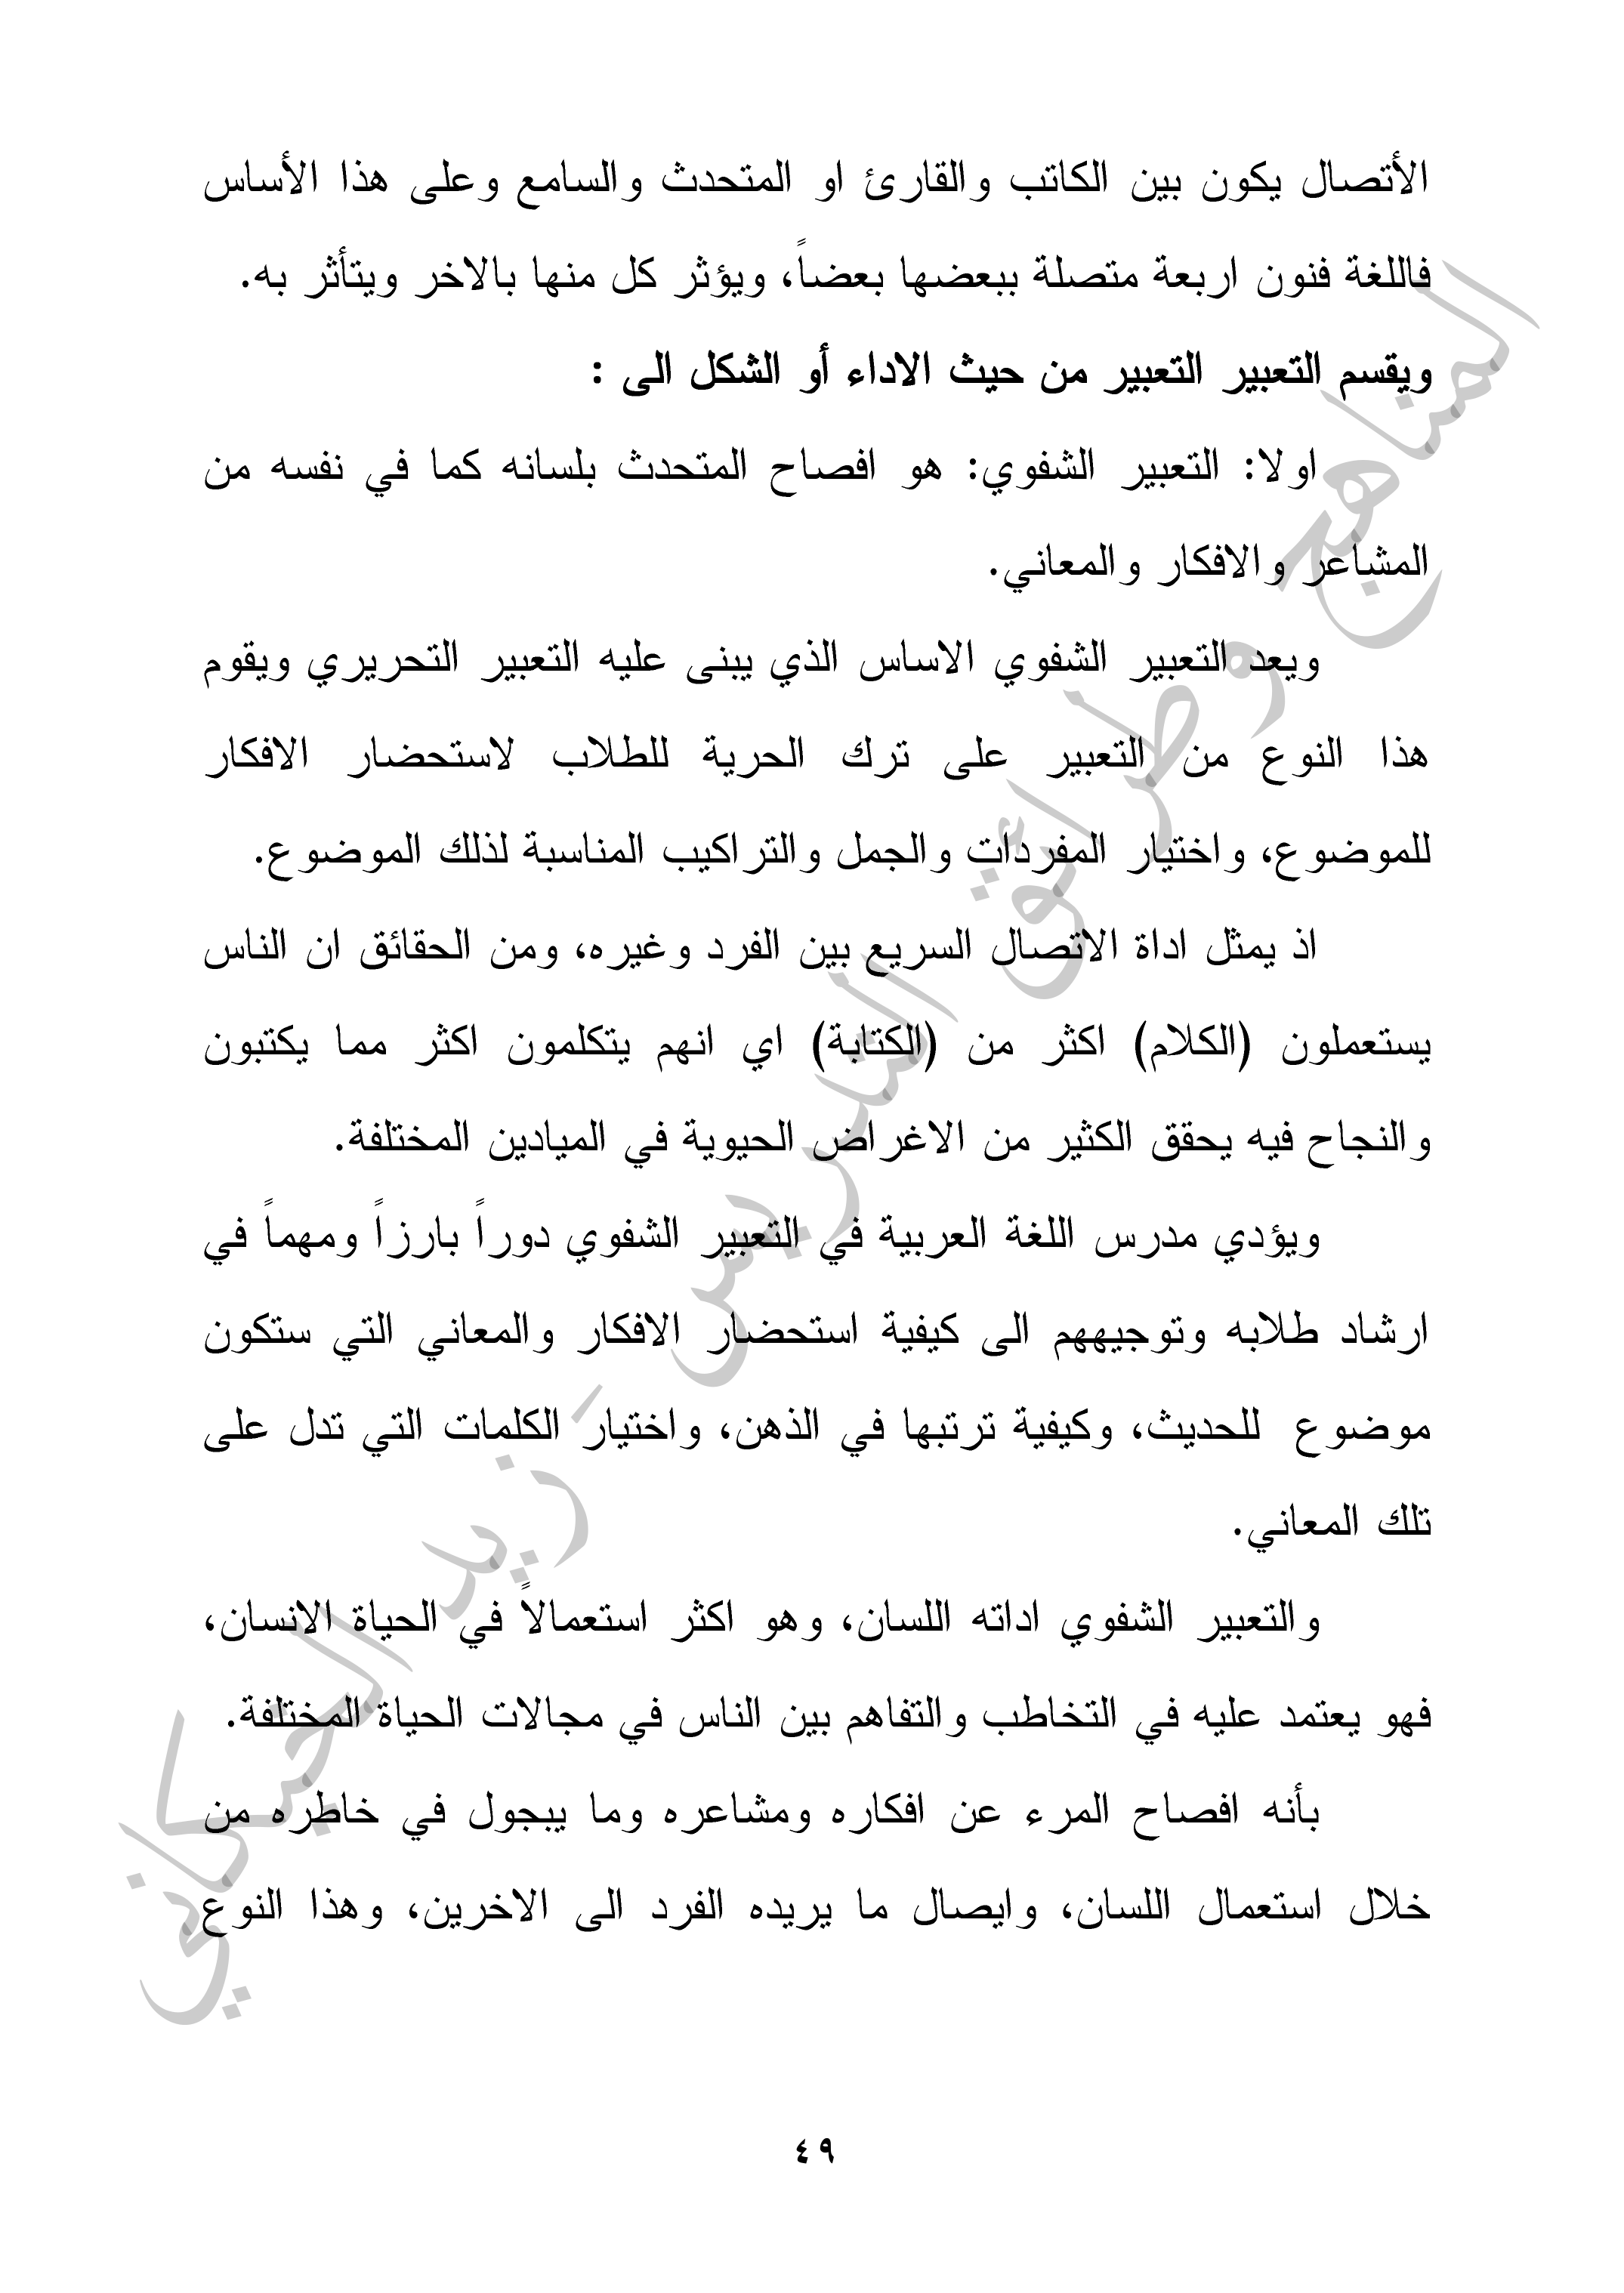 الأتصال يكون بين الكاتب والقارئ او المتحدث والسامع وعلى هذا الأساس
فاللغة فنون اربعة متصلة ببعضها بعضاً، ويؤثر كل منها بالاخر ويتأثر به.
ويقسم التعبير التعبير من حيث الاداء أو الشكل الى :
اولا: التعبير الشفوي: هو افصاح المتحدث بلسانه كما في نفسه من
المشاعر والافكار والمعاني.
ويعد التعبير الشفوي الاساس الذي يبنى عليه التعبير التحريري ويقوم
هذا النوع من التعبير على ترك الحرية للطلاب لاستحضار الافكار
للموضوع، واختيار المفردات والجمل والتراكيب المناسبة لذلك الموضوع.
اذ يمثل اداة الاتصال السريع بين الفرد وغيره، ومن الحقائق ان الناس
يستعملون (الكلام) اكثر من (الكتابة) اي انهم يتكلمون اكثر مما يكتبون
والنجاح فيه يحقق الكثير من الاغراض الحيوية في الميادين المختلفة.
ويؤدي مدرس اللغة العربية في التعبير الشفوي دوراً بارزاً ومهماً في
ارشاد طلابه وتوجيههم الى كيفية استحضار الافكار والمعاني التي ستكون
موضوع للحديث، وكيفية ترتبها في الذهن، واختيار الكلمات التي تدل على
تلك المعاني.
والتعبير الشفوي اداته اللسان، وهو اكثر استعمالاً في الحياة الانسان،
فهو يعتمد عليه في التخاطب والتفاهم بين الناس في مجالات الحياة المختلفة.
بأنه افصاح المرء عن افكاره ومشاعره وما يبجول في خاطره من
خلال استعمال اللسان، وايصال ما يريده الفرد الى الاخرين، وهذا النوع
المناهج وطرائق التدريس - زيد الخيكاني
٤٩